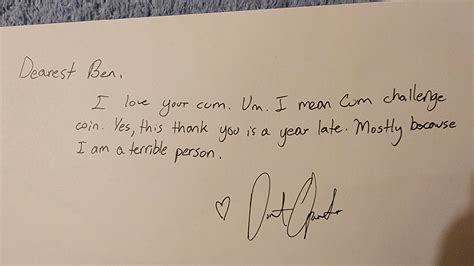 Dearest Ben,
I love your cum. Um. I mean Cum challenge
coin. Yes, this thank you is a year late. Mostly because
I am a terrible person.
♡